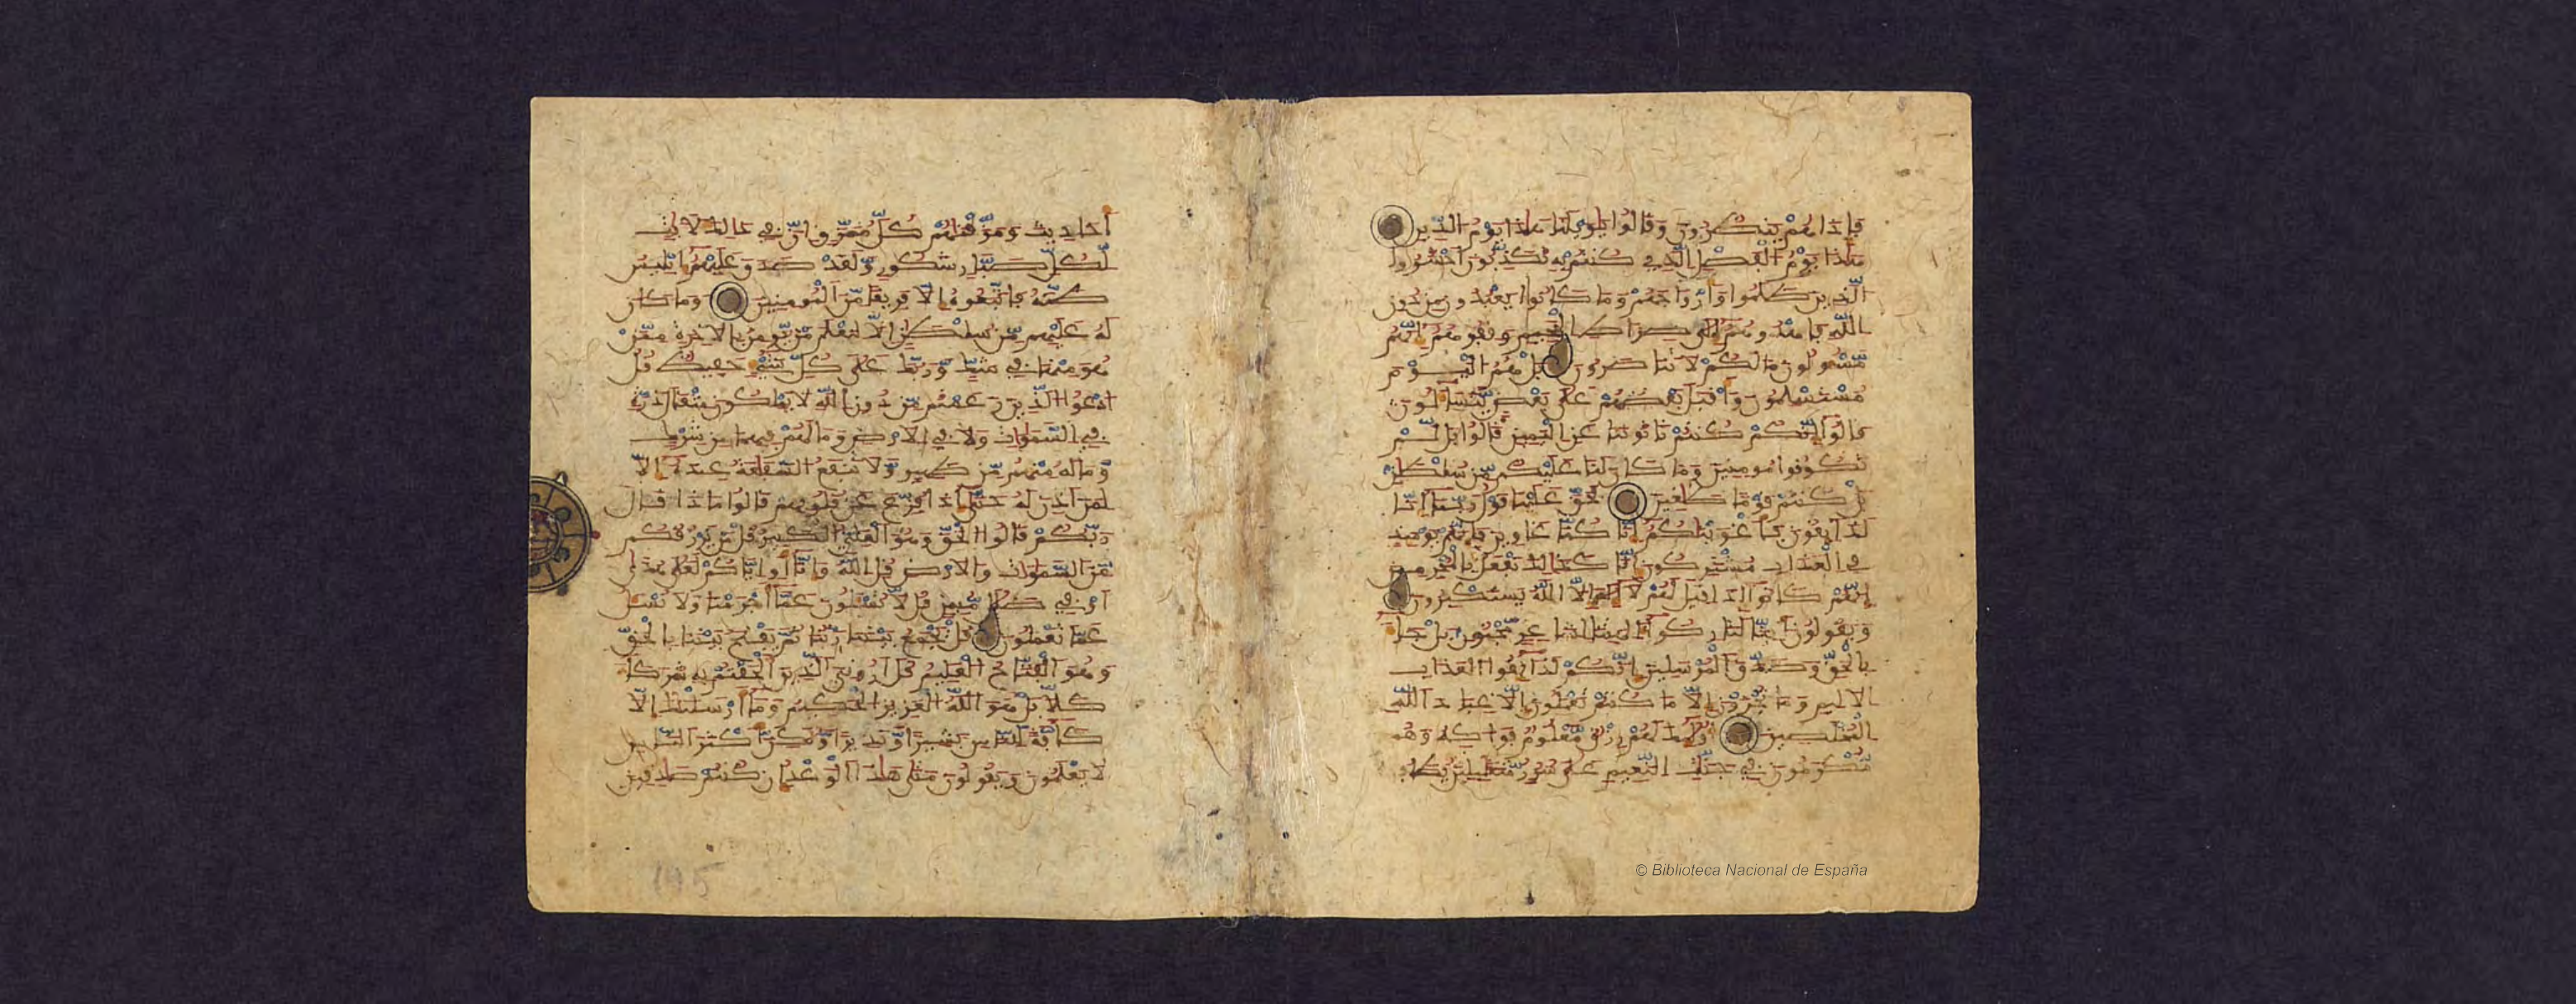 فإذا هم ينظرون وقالوا يويلنا هذا يوم الدين
هذا يوم الفصل الذي كنتم به تكذبون احشروا
الذين ظلموا وأزواجهم وما كانوا يعبدون من دون
الله فاهدوهم إلى صراط الجحيم وقفوهم إنهم
مسئولون ما لكم لا تناصرون بل هم اليوم
مستسلمون وأقبل بعضهم على بعض يتساءلون
قالوا إنكم كنتم تأتوننا عن اليمين قالوا بل لم
تكونوا مومنين وما كان لنا عليكم من سلطن
بل كنتم قوما طغين فحق علينا قول ربنا إنا
لذائقون فأغوينكم إنا كنا غاوين فإنهم يومئذ
في العذاب مشتركون إنا كذلك نفعل بالمجرمين
إنهم كانوا إذا قيل لهم لا إله إلا الله يستكبرون
ويقولون أئنا لتاركوا ءالهتنا لشاعر مجنون بل جاء
بالحق وصدق المرسلين إنكم لذائقوا العذاب
الاليم وما تجزون إلا ما كنتم تعملون إلا عباد الله
المخلصين أولئك لهم رزق معلوم فواكه وهم
مكرمون في جنت النعيم على سرر متقبلين يطاف
أحاديث ومزقنهم كل ممزق إن في ذلك لأيت
لكل صبار شكور ولقد صدق عليهم إبليس
ظنه فاتبعوه إلا فريقا من المومنين وما كان
له عليهم من سلطن إلا لنعلم من يومن بالاخرة ممن
هو منها في شك وربك على كل شيء حفيظ قل
ادعوا الذين زعمتم من دون الله لا يملكون مثقال ذرة
في السموات ولا في الارض وما لهم فيهما من شرك
وما له منهم من ظهير ولا تنفع الشفعة عنده إلا
لمن أذن له حتى إذا فزع عن قلوبهم قالوا ماذا قال
ربكم قالوا الحق وهو العلي الكبير قل من يرزقكم
من السموات والارض قل الله وإنا أو إياكم لعلى هدى
أو في ضلل مبين قل لا تسئلون عما أجرمنا ولا نسئل
عما تعملون قل يجمع بيننا ربنا ثم يفتح بيننا بالحق
وهو الفتاح العليم قل أروني الذين ألحقتم به شركاء
كلا بل هو الله العزيز الحكيم وما أرسلنك إلا
كافة للناس بشيرا ونذيرا ولكن أكثر الناس
لا يعلمون ويقولون متى هذا الوعد إن كنتم صدقين
145
© Biblioteca Nacional de España